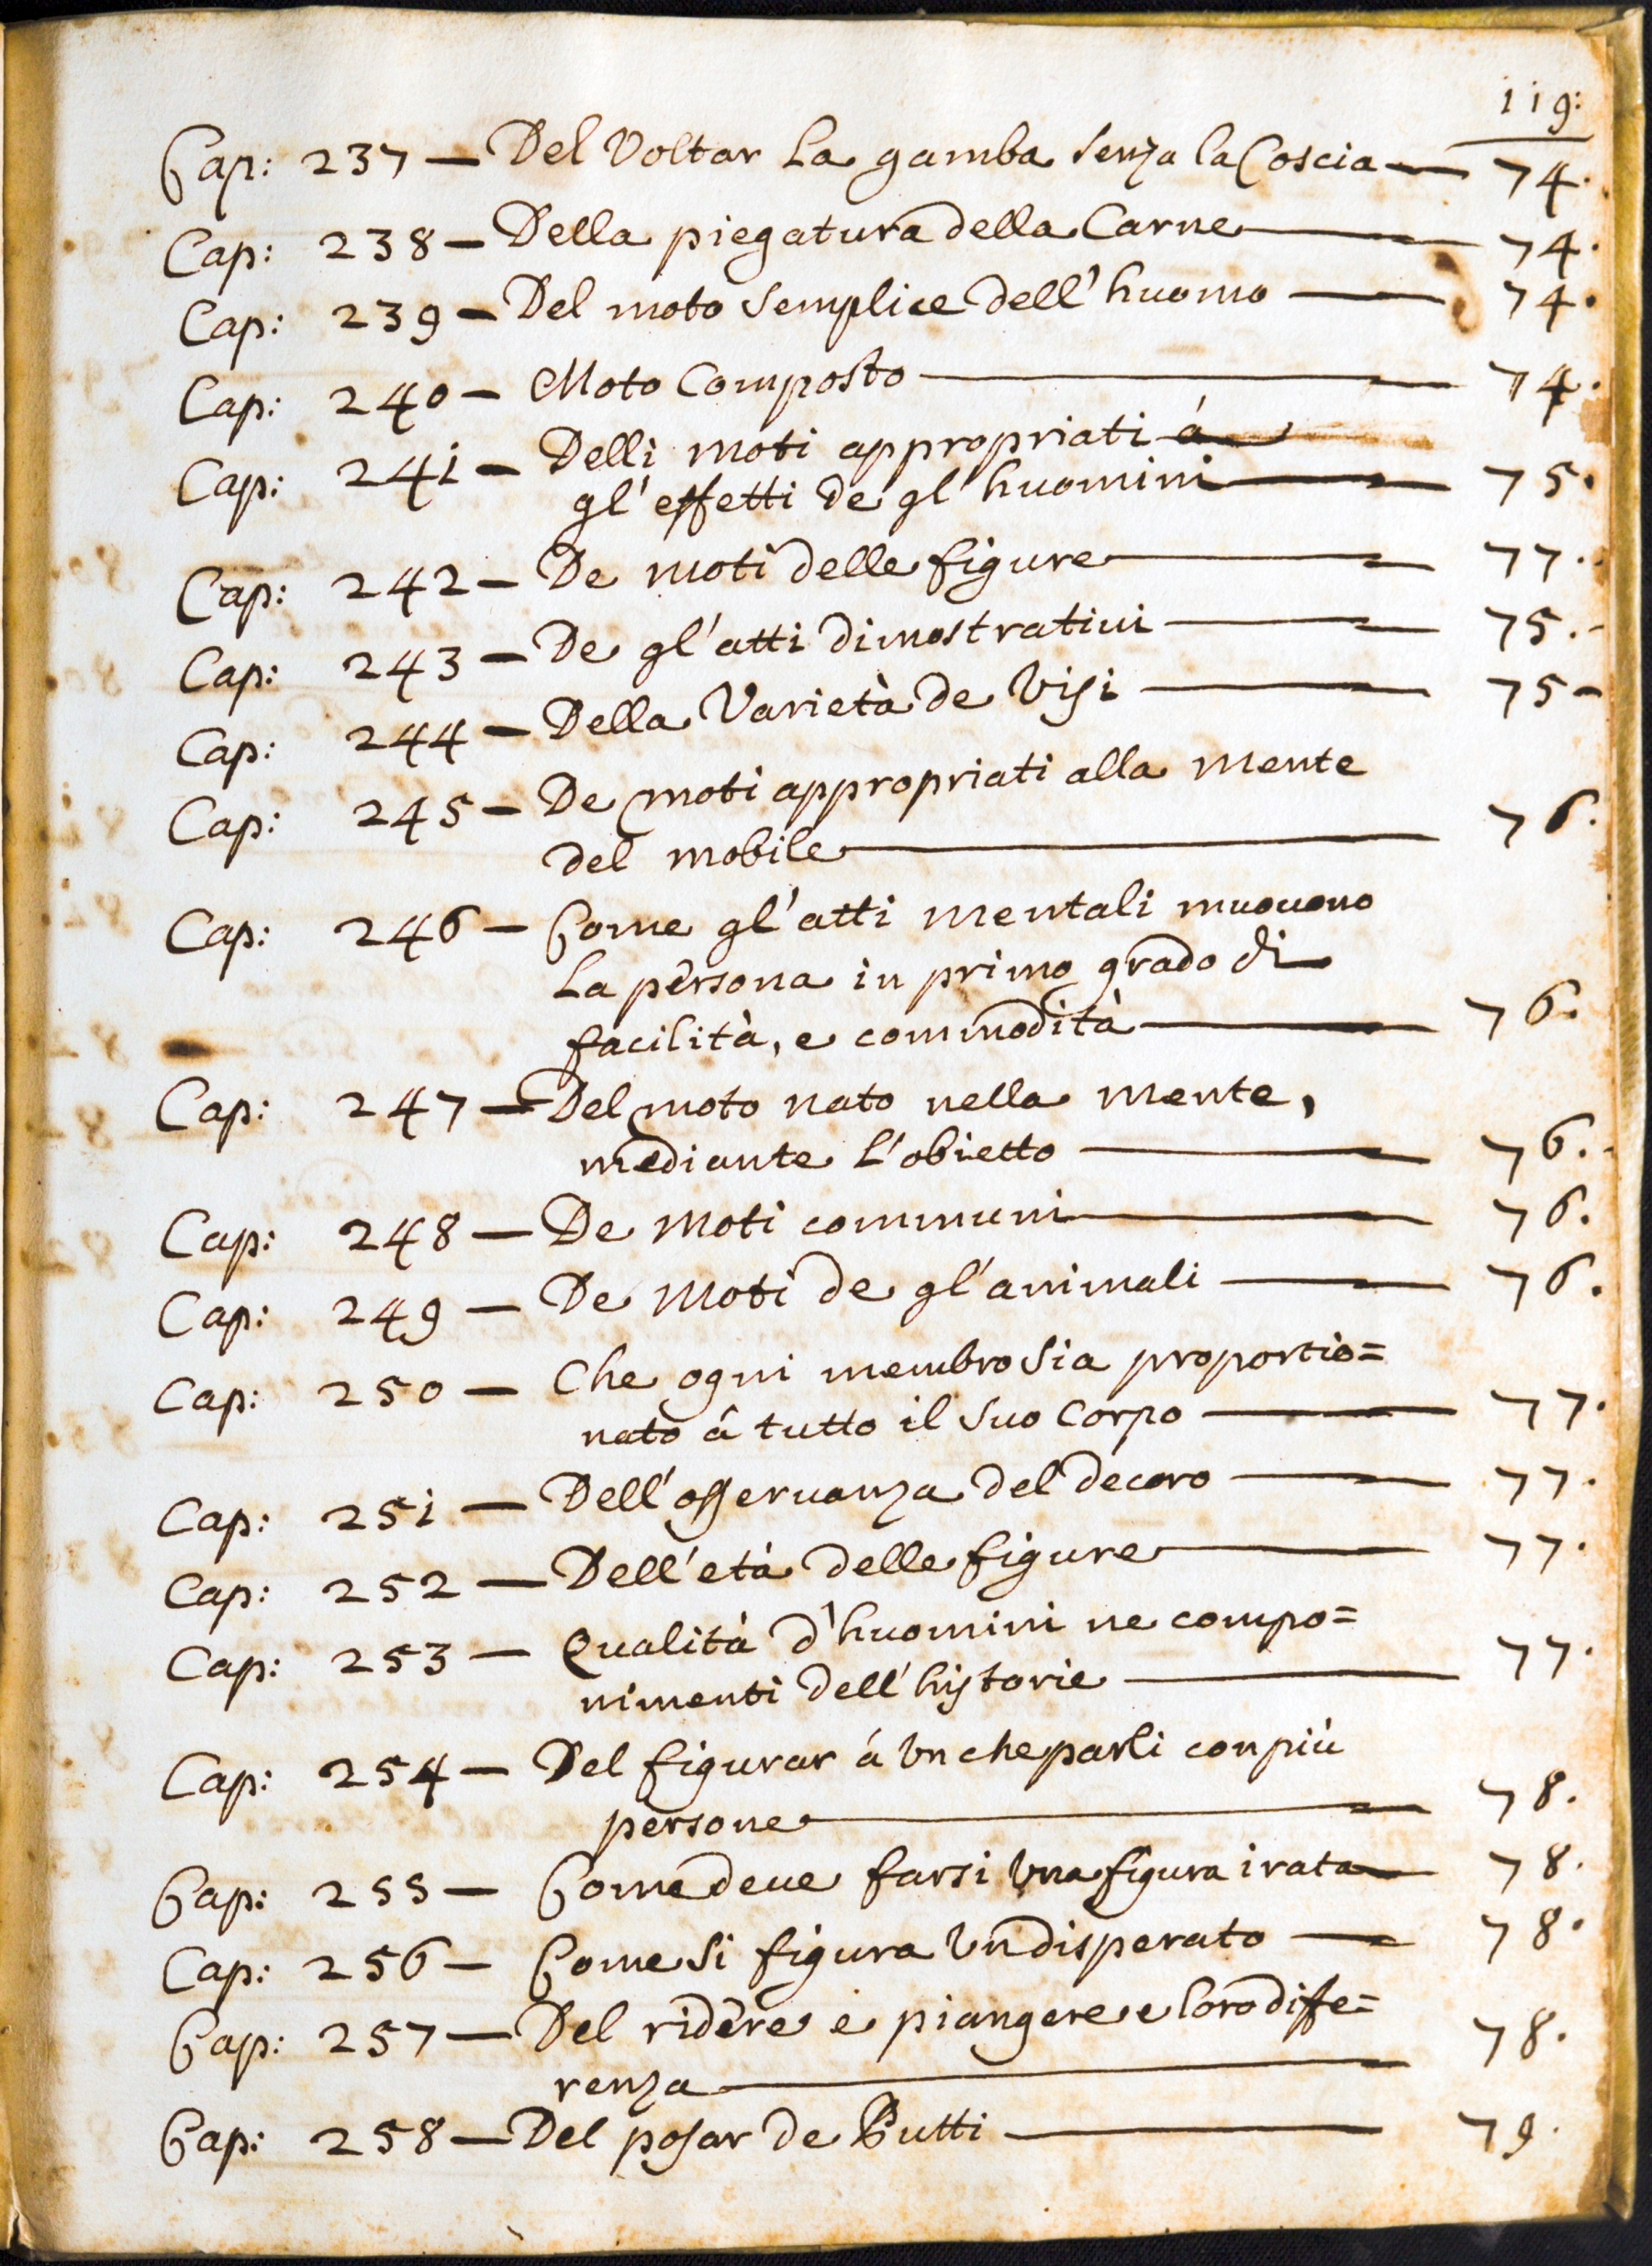 119:
Cap: 237 — Del Voltar La gamba senza la Coscia — 74.
Cap: 238 — Della piegatura della Carne — 74.
Cap: 239 — Del moto semplice dell'huomo — 74.
Cap: 240 — Moto Composto — 74.
Cap: 241 — Delli moti appropriati á
gl'effetti de gl'huomini — 75.
Cap: 242 — De moti delle figure — 77.
Cap: 243 — De gl'atti dimostratiui — 75.
Cap: 244 — Della Varietà de Visi — 75
Cap: 245 — De moti appropriati alla mente
del mobile — 76.
Cap: 246 — Come gl'atti mentali muouono
La persona in primo grado di
facilità, e commodità — 76.
Cap: 247 — Del moto nato nella mente,
mediante l'obietto — 76.
Cap: 248 — De moti communi — 76.
Cap: 249 — De Moti de gl'animali — 76.
Cap: 250 — Che ogni membro sia proportio=
nato á tutto il suo Corpo — 77.
Cap: 251 — Dell'osseruanza del decoro — 77.
Cap: 252 — Dell'età delle figure — 77.
Cap: 253 — Qualità d'huomini ne compo=
nimenti dell'historie — 77.
Cap: 254 — Del figurar á Vn che parli con più
persone — 78.
Cap: 255 — Come deue farsi Vna figura irata — 78.
Cap: 256 — Come si figura Vn disperato — 78.
Cap: 257 — Del ridere e piangere e loro diffe=
renza — 78.
Cap: 258 — Del posar de Putti — 79.